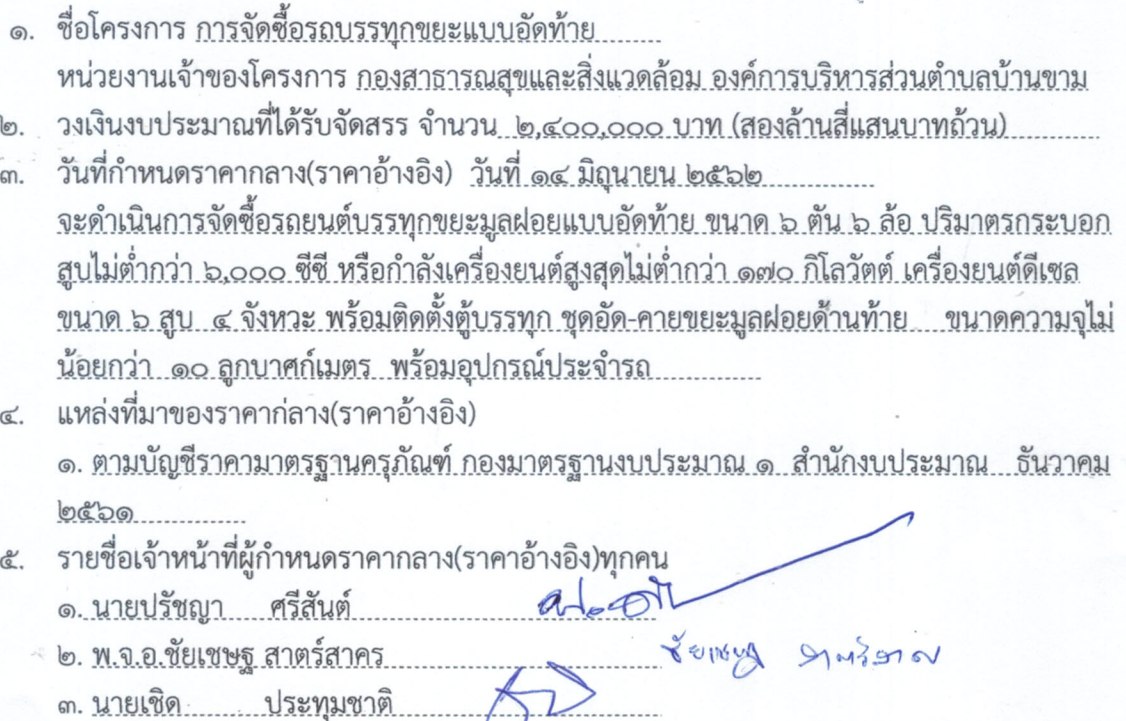 ๑. ชื่อโครงการ การจัดซื้อรถบรรทุกขยะแบบอัดท้าย
หน่วยงานเจ้าของโครงการ กองสาธารณสุขและสิ่งแวดล้อม องค์การบริหารส่วนตำบลบ้านขาม
๒. วงเงินงบประมาณที่ได้รับจัดสรร จำนวน ๒,๔๐๐,๐๐๐ บาท (สองล้านสี่แสนบาทถ้วน)
๓. วันที่กำหนดราคากลาง(ราคาอ้างอิง) วันที่ ๑๔ มิถุนายน ๒๕๖๒
จะดำเนินการจัดซื้อรถยนต์บรรทุกขยะมูลฝอยแบบอัดท้าย ขนาด ๖ ตัน ๖ ล้อ ปริมาตรกระบอก
สูบไม่ต่ำกว่า ๖,๐๐๐ ซีซี หรือกำลังเครื่องยนต์สูงสุดไม่ต่ำกว่า ๑๗๐ กิโลวัตต์ เครื่องยนต์ดีเซล
ขนาด ๖ สูบ ๔ จังหวะ พร้อมติดตั้งตู้บรรทุก ชุดอัด-คายขยะมูลฝอยด้านท้าย ขนาดความจุไม่
น้อยกว่า ๑๐ ลูกบาศก์เมตร พร้อมอุปกรณ์ประจำรถ
๔. แหล่งที่มาของราคาก่ลาง(ราคาอ้างอิง)
๑. ตามบัญชีราคามาตรฐานครุภัณฑ์ กองมาตรฐานงบประมาณ ๑ สำนักงบประมาณ ธันวาคม
๒๕๖๑
๕. รายชื่อเจ้าหน้าที่ผู้กำหนดราคากลาง(ราคาอ้างอิง)ทุกคน
๑. นายปรัชญา ศรีสันต์
๒. พ.จ.อ.ชัยเชษฐ สาตร์สาคร ชัยเชษฐ
๓. นายเชิด ประทุมชาติ